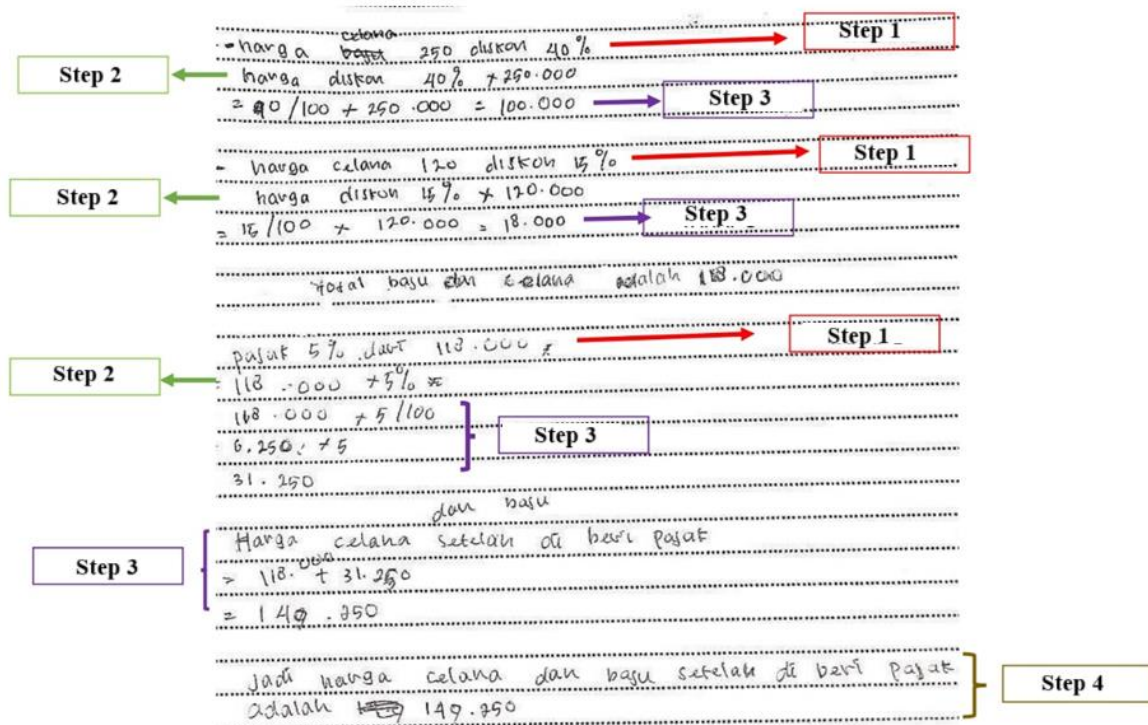 celana
- harga baju 250 diskon 40% Step 1
Step 2 harga diskon 40% × 250.000
= 40/100 × 250.000 = 100.000 Step 3
- harga celana 120 diskon 15% Step 1
Step 2 harga diskon 15% × 120.000
= 15/100 × 120.000 = 18.000 Step 3
total baju dan celana adalah 118.000
pajak 5% dari 118.000 = Step 1
Step 2 = 118.000 × 5% =
118.000 × 5/100
= 6.250 × 5 Step 3
31.250
dan baju
Harga celana setelah di beri pajak
Step 3 = 118.000 + 31.250
= 149.250
Jadi harga celana dan baju setelah di beri pajak
adalah 149.250 Step 4